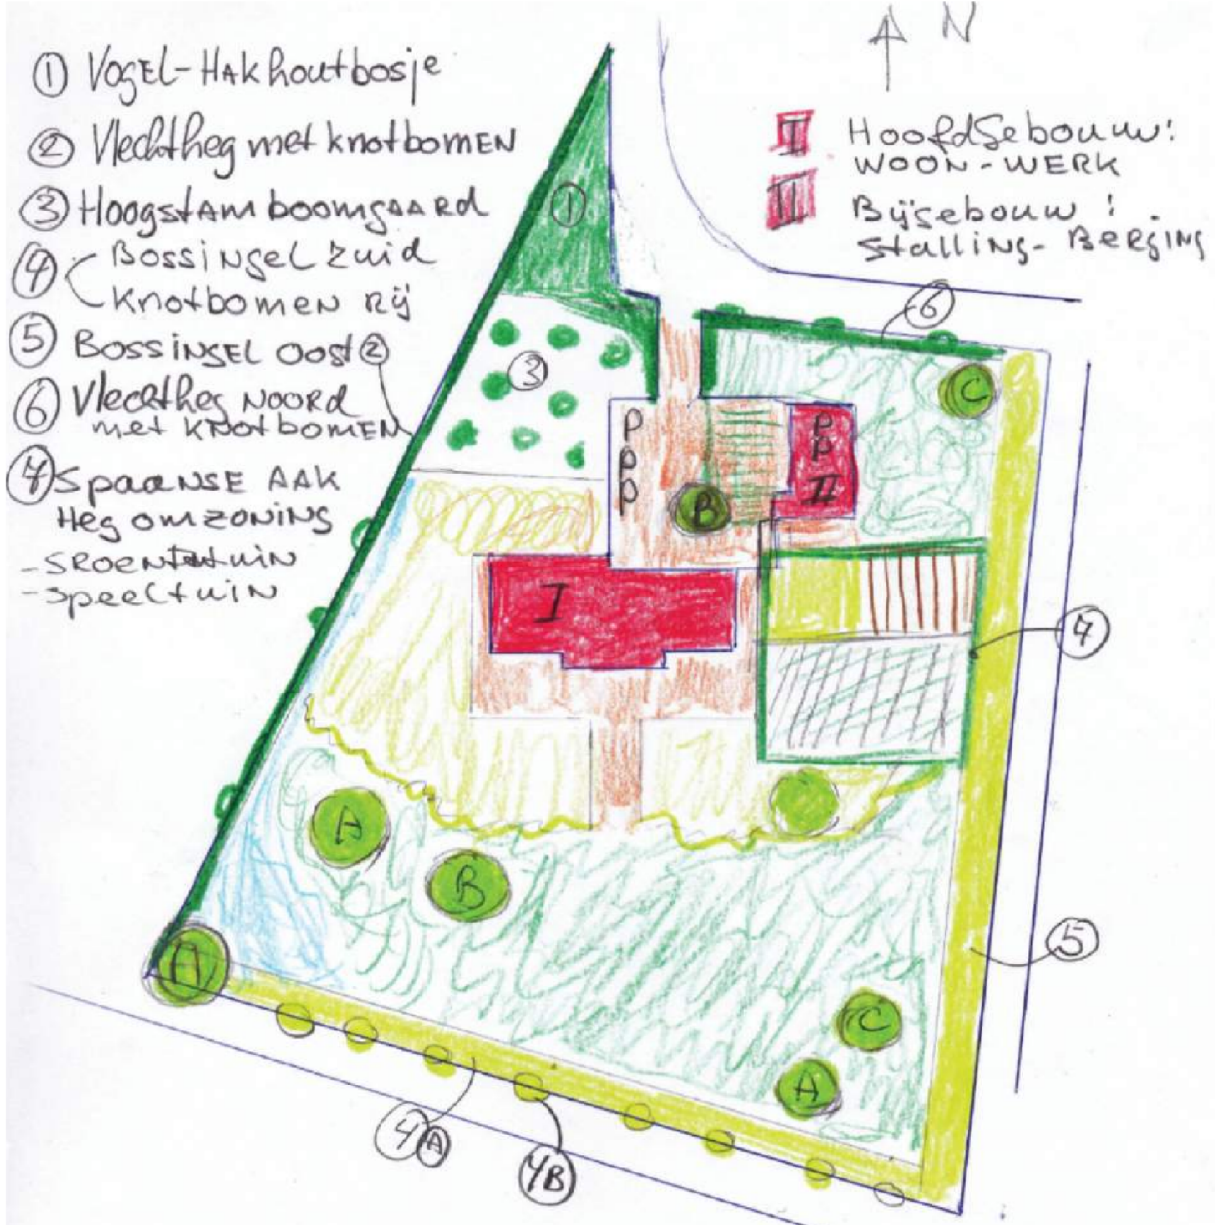 ① Vogel-Hakhoutbosje
② Vlechtheg met knotbomen
③ Hoogstam boomgaard
④ Bossingel Zuid
Knotbomen Rij
⑤ Bossingel Oost
⑥ Vlechtheg Noord
met Knotbomen
⑦ Spaanse Aak
Heg omzoning
- Groentetuin
- Speeltuin
N
I Hoofdgebouw:
WOON-WERK
II Bijgebouw:
Stalling-Berging
①
②
③
⑥
C
P
P
P
P
P
II
B
I
⑦
A
B
A
⑤
C
A
4A
4B